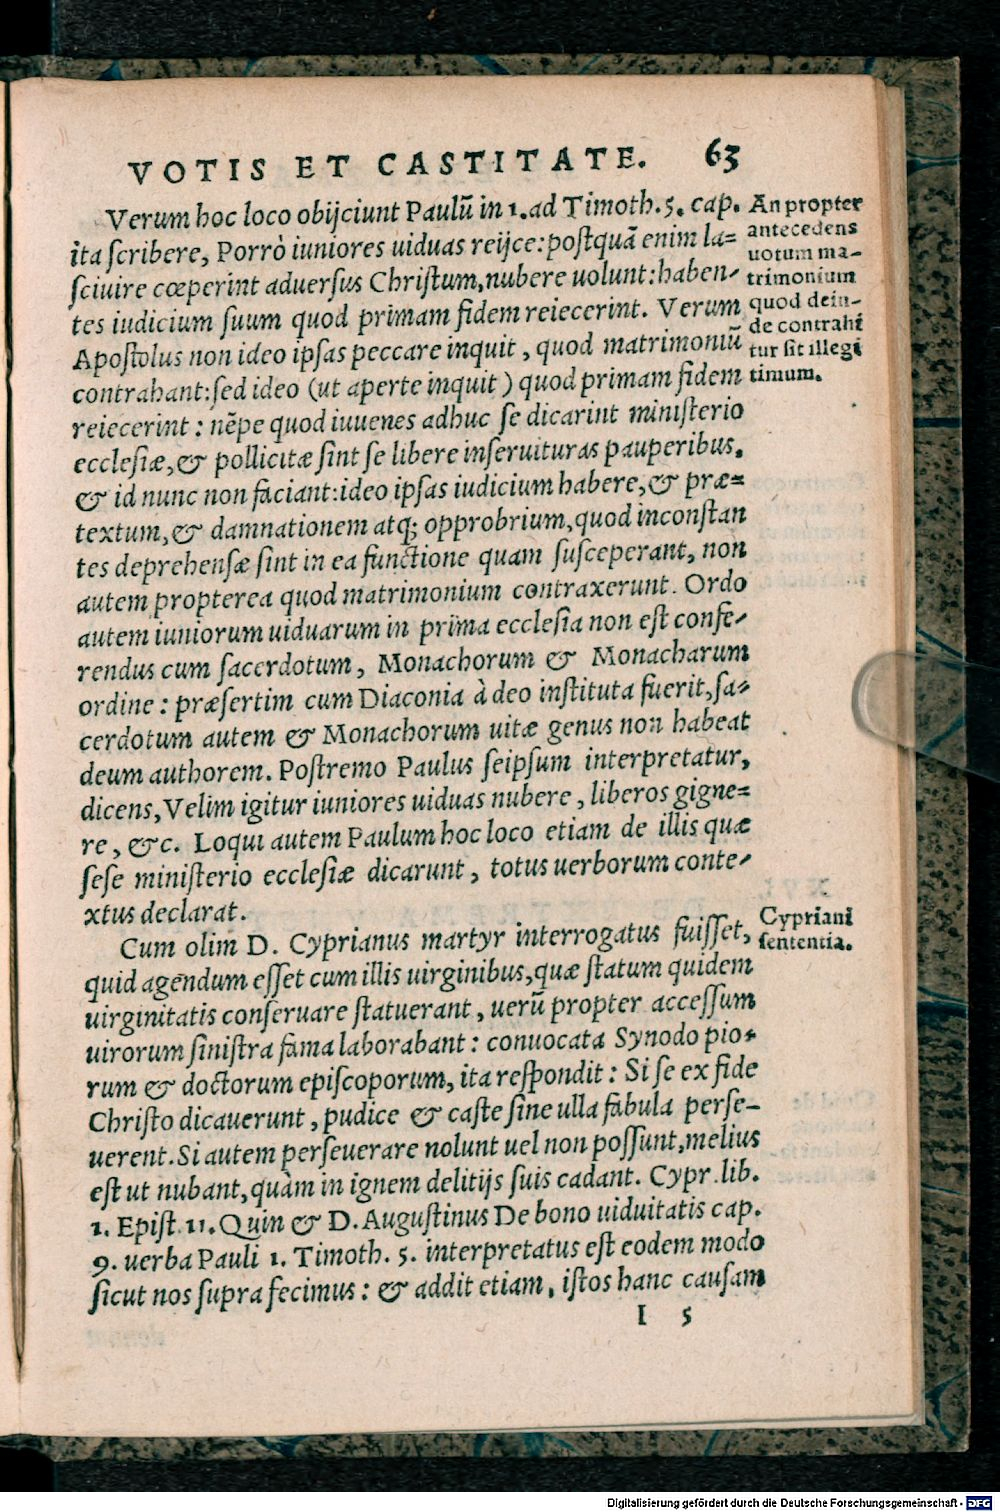 VOTIS ET CASTITATE. 63
Verum hoc loco obijciunt Paulū in 1. ad Timoth. 5. cap.
ita scribere, Porrò iuniores uiduas reijce: postquā enim la=
sciuire cœperint aduersus Christum, nubere uolunt: haben-
tes iudicium suum quod primam fidem reiecerint. Verum
Apostolus non ideo ipsas peccare inquit, quod matrimoniū
contrahant: sed ideo (ut aperte inquit) quod primam fidem
reiecerint: nēpe quod iuuenes adhuc se dicarint ministerio
ecclesiæ, & pollicitæ sint se libere inseruituras pauperibus.
& id nunc non faciant: ideo ipsas iudicium habere, & præ=
textum, & damnationem atq; opprobrium, quod inconstan
tes deprehensæ sint in ea functione quam susceperant, non
autem propterea quod matrimonium contraxerunt. Ordo
autem iuniorum uiduarum in prima ecclesia non est confe-
rendus cum sacerdotum, Monachorum & Monacharum
ordine: præsertim cum Diaconia à deo instituta fuerit, sa-
cerdotum autem & Monachorum uitæ genus non habeat
deum authorem. Postremo Paulus seipsum interpretatur,
dicens, Velim igitur iuniores uiduas nubere, liberos gigne=
re, &c. Loqui autem Paulum hoc loco etiam de illis quæ
sese ministerio ecclesiæ dicarunt, totus uerborum conte-
xtus declarat.
An propter
antecedens
uotum ma-
trimonium
quod dein-
de contrahi
tur sit illegi
timum.
Cum olim D. Cyprianus martyr interrogatus fuisset,
quid agendum esset cum illis uirginibus, quæ statum quidem
uirginitatis conseruare statuerant, uerū propter accessum
uirorum sinistra fama laborabant: conuocata Synodo pio-
rum & doctorum episcoporum, ita respondit: Si se ex fide
Christo dicauerunt, pudice & caste sine ulla fabula perse-
uerent. Si autem perseuerare nolunt uel non possunt, melius
est ut nubant, quàm in ignem delitijs suis cadant. Cypr. lib.
1. Epist. 11. Quin & D. Augustinus De bono uiduitatis cap.
9. uerba Pauli 1. Timoth. 5. interpretatus est eodem modo
sicut nos supra fecimus: & addit etiam, istos hanc causam
Cypriani
sententia.
I 5
Digitalisierung gefördert durch die Deutsche Forschungsgemeinschaft - DFG